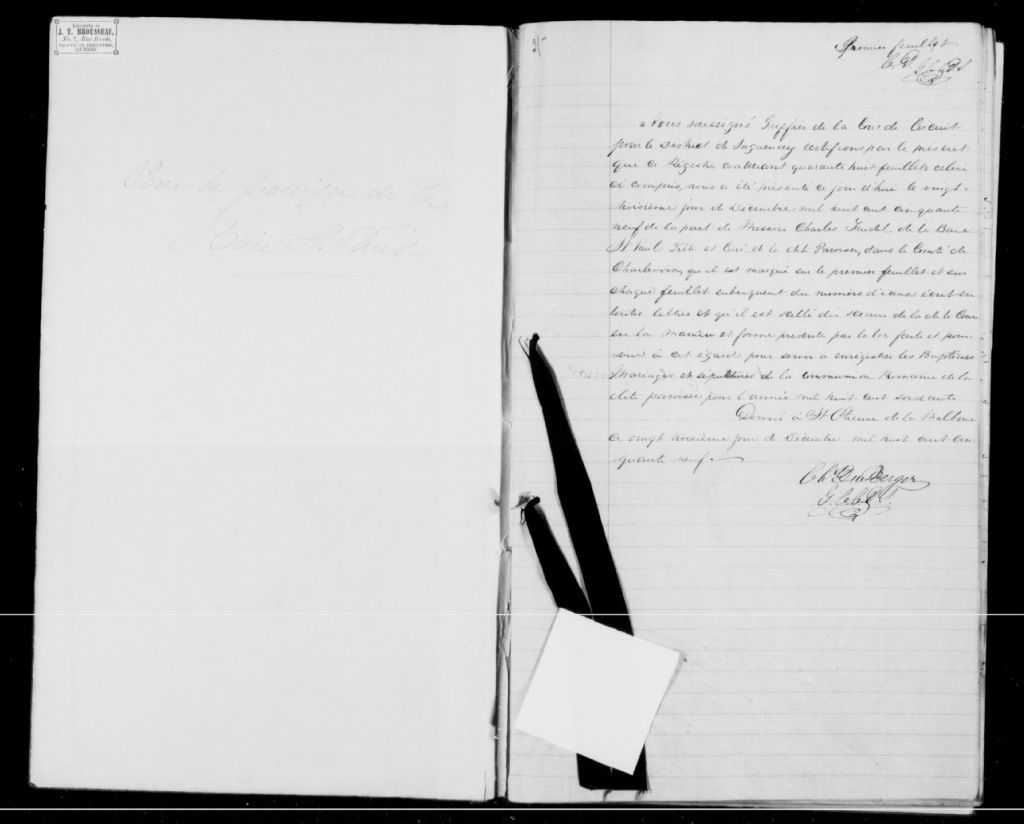 Librairie de
J. T. BROUSSEAU,
No. 7, Rue Buade,
QUÉBEC
Pour la paroisse de la
Baie St. Paul
Premier feuillet
Nous soussigné Greffier de la Cour de Circuit
pour le District de Saguenay certifions par le présent
que ce Régistre contenant quarante huit feuillets celui
ci compris, nous a été présenté ce jour d'hui le vingt-
troisième jour de Décembre mil huit cent cinquante
neuf de la part de Messire Charles Trudel de la Baie
St Paul Prêtre et Curé de la dite Paroisse, dans le Comté de
Charlevoix, qu'il est marqué sur le premier feuillet et sur
chaque feuillet subséquent du numéro d'iceux écrit en
toutes lettres et qu'il est scellé du sceau de la dite Cour
en la manière et forme par la loi faite et pour-
vue à cet égard pour servir à enrégistrer les Baptêmes
Mariages et sépultures de la communion Romaine de la
dite paroisse pour l'année mil huit cent soixante
Donné à St Etienne de la Malbaie
ce vingt troisième jour de Décembre mil huit cent cin-
quante neuf.